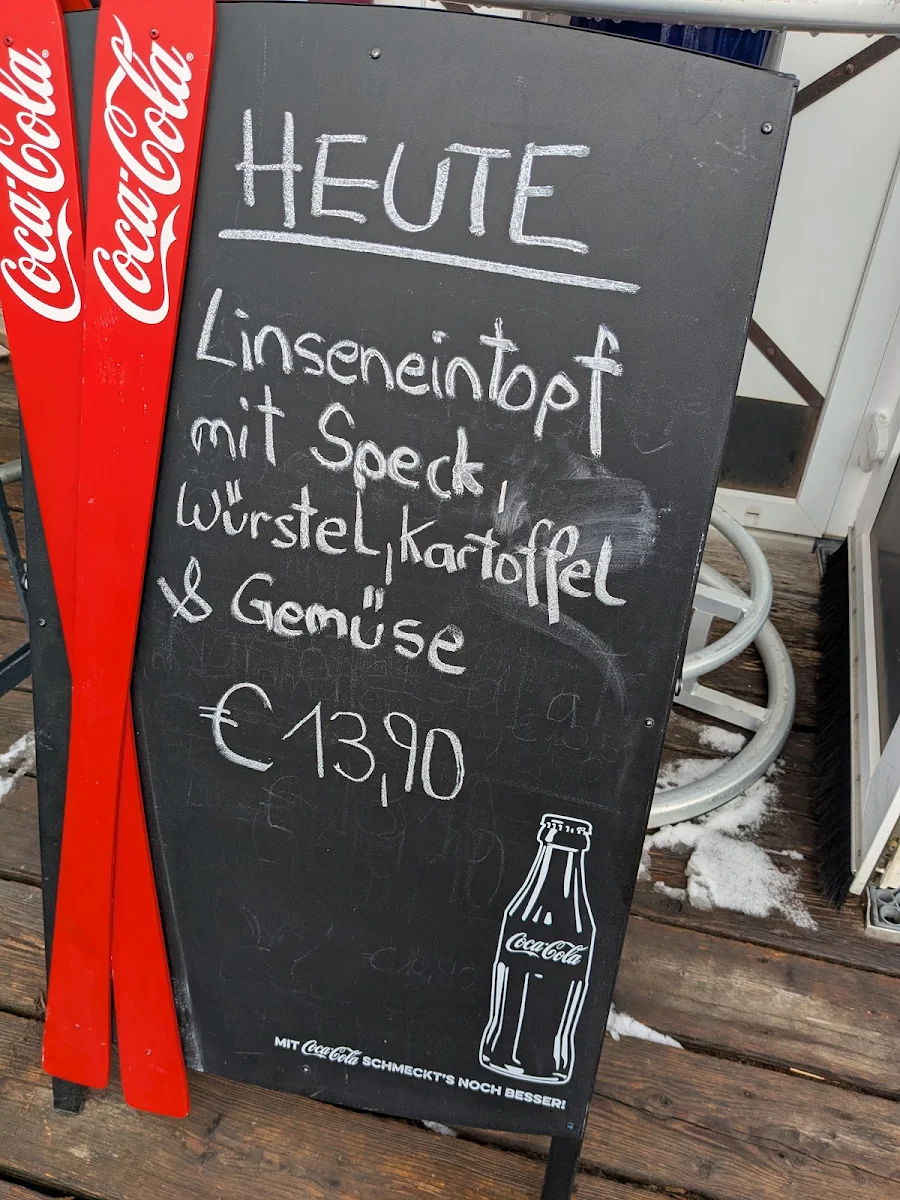 Coca-Cola
Coca-Cola
HEUTE
Linseneintopf
mit Speck,
Würstel, Kartoffel
& Gemüse
€ 13,90
Coca-Cola
MIT Coca-Cola SCHMECKT'S NOCH BESSER!